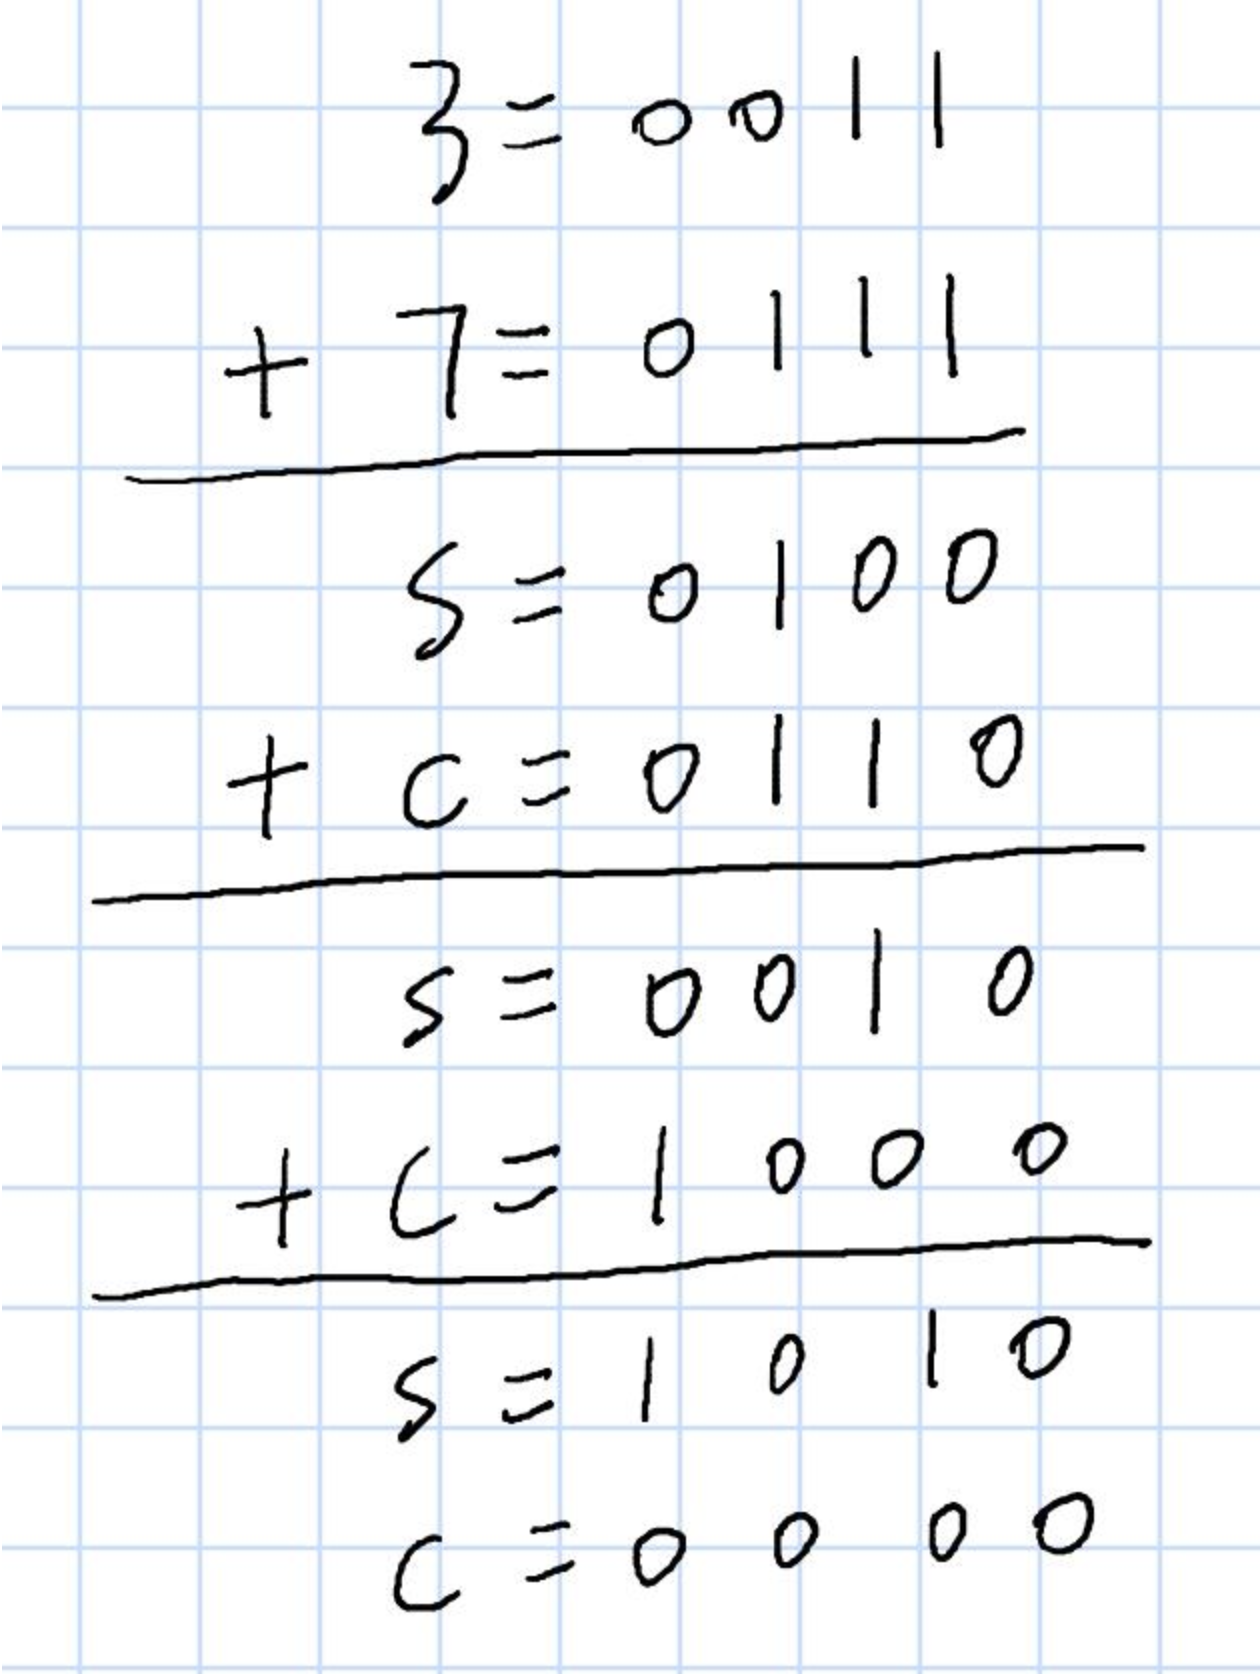 3 = 0 0 1 1
+ 7 = 0 1 1 1
S = 0 1 0 0
+ C = 0 1 1 0
S = 0 0 1 0
+ C = 1 0 0 0
S = 1 0 1 0
C = 0 0 0 0